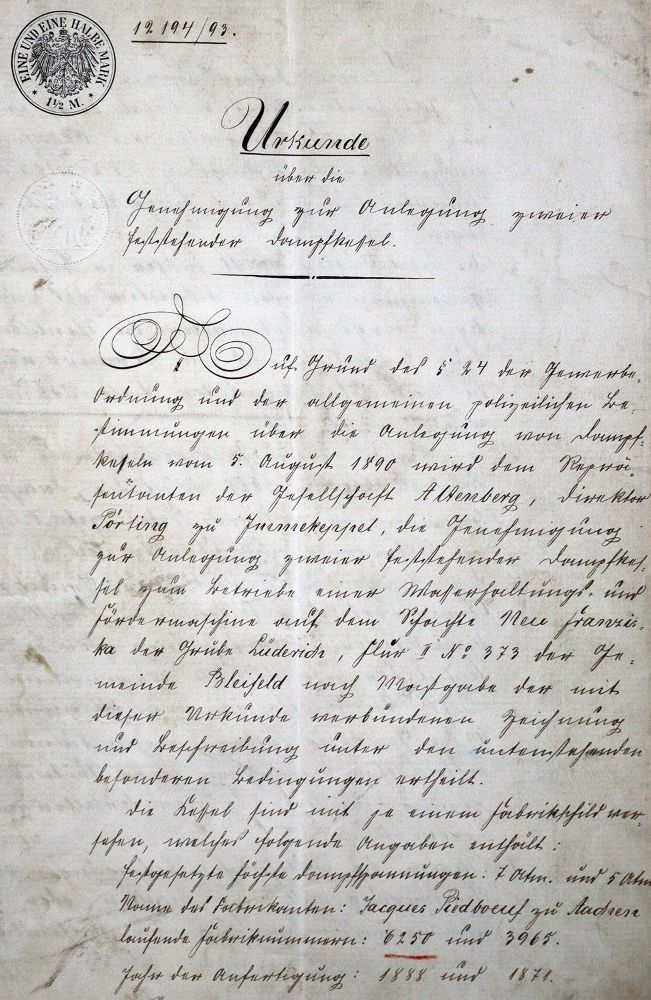 EINE UND EINE HALBE MARK
1½ M.
12 194/93.
Urkunde
über die
Genehmigung zur Anlegung zweier
feststehender Dampfkessel.
Auf Grund des § 24 der Gewerbe-
Ordnung und der allgemeinen polizeilichen Be-
stimmungen über die Anlegung von Dampf-
kesseln vom 5. August 1890 wird dem Reprä-
sentanten der Gesellschaft Altenberg, Direktor
Pörting zu Immekeppel, die Genehmigung
zur Anlegung zweier feststehender Dampfkes-
sel zum Betriebe einer Wasserhaltungs- und
Fördermaschine auf dem Schachte Neu Franzis-
ka der Grube Lüderich, Flur II No 373 der Ge-
meinde Bleifeld nach Maßgabe der mit
dieser Urkunde verbundenen Zeichnung
und Beschreibung unter den untenstehenden
besonderen Bedingungen ertheilt.
Die Kessel sind mit je einem Fabrikschild ver-
sehen, welches folgende Angaben enthält:
festgesetzte höchste Dampfspannungen: 7 Atm. und 5 Atm
Name des Fabrikanten: Jacques Piedboeuf zu Aachen
laufende Fabriknummern: 6250 und 3965.
Jahr der Anfertigung: 1888 und 1871.